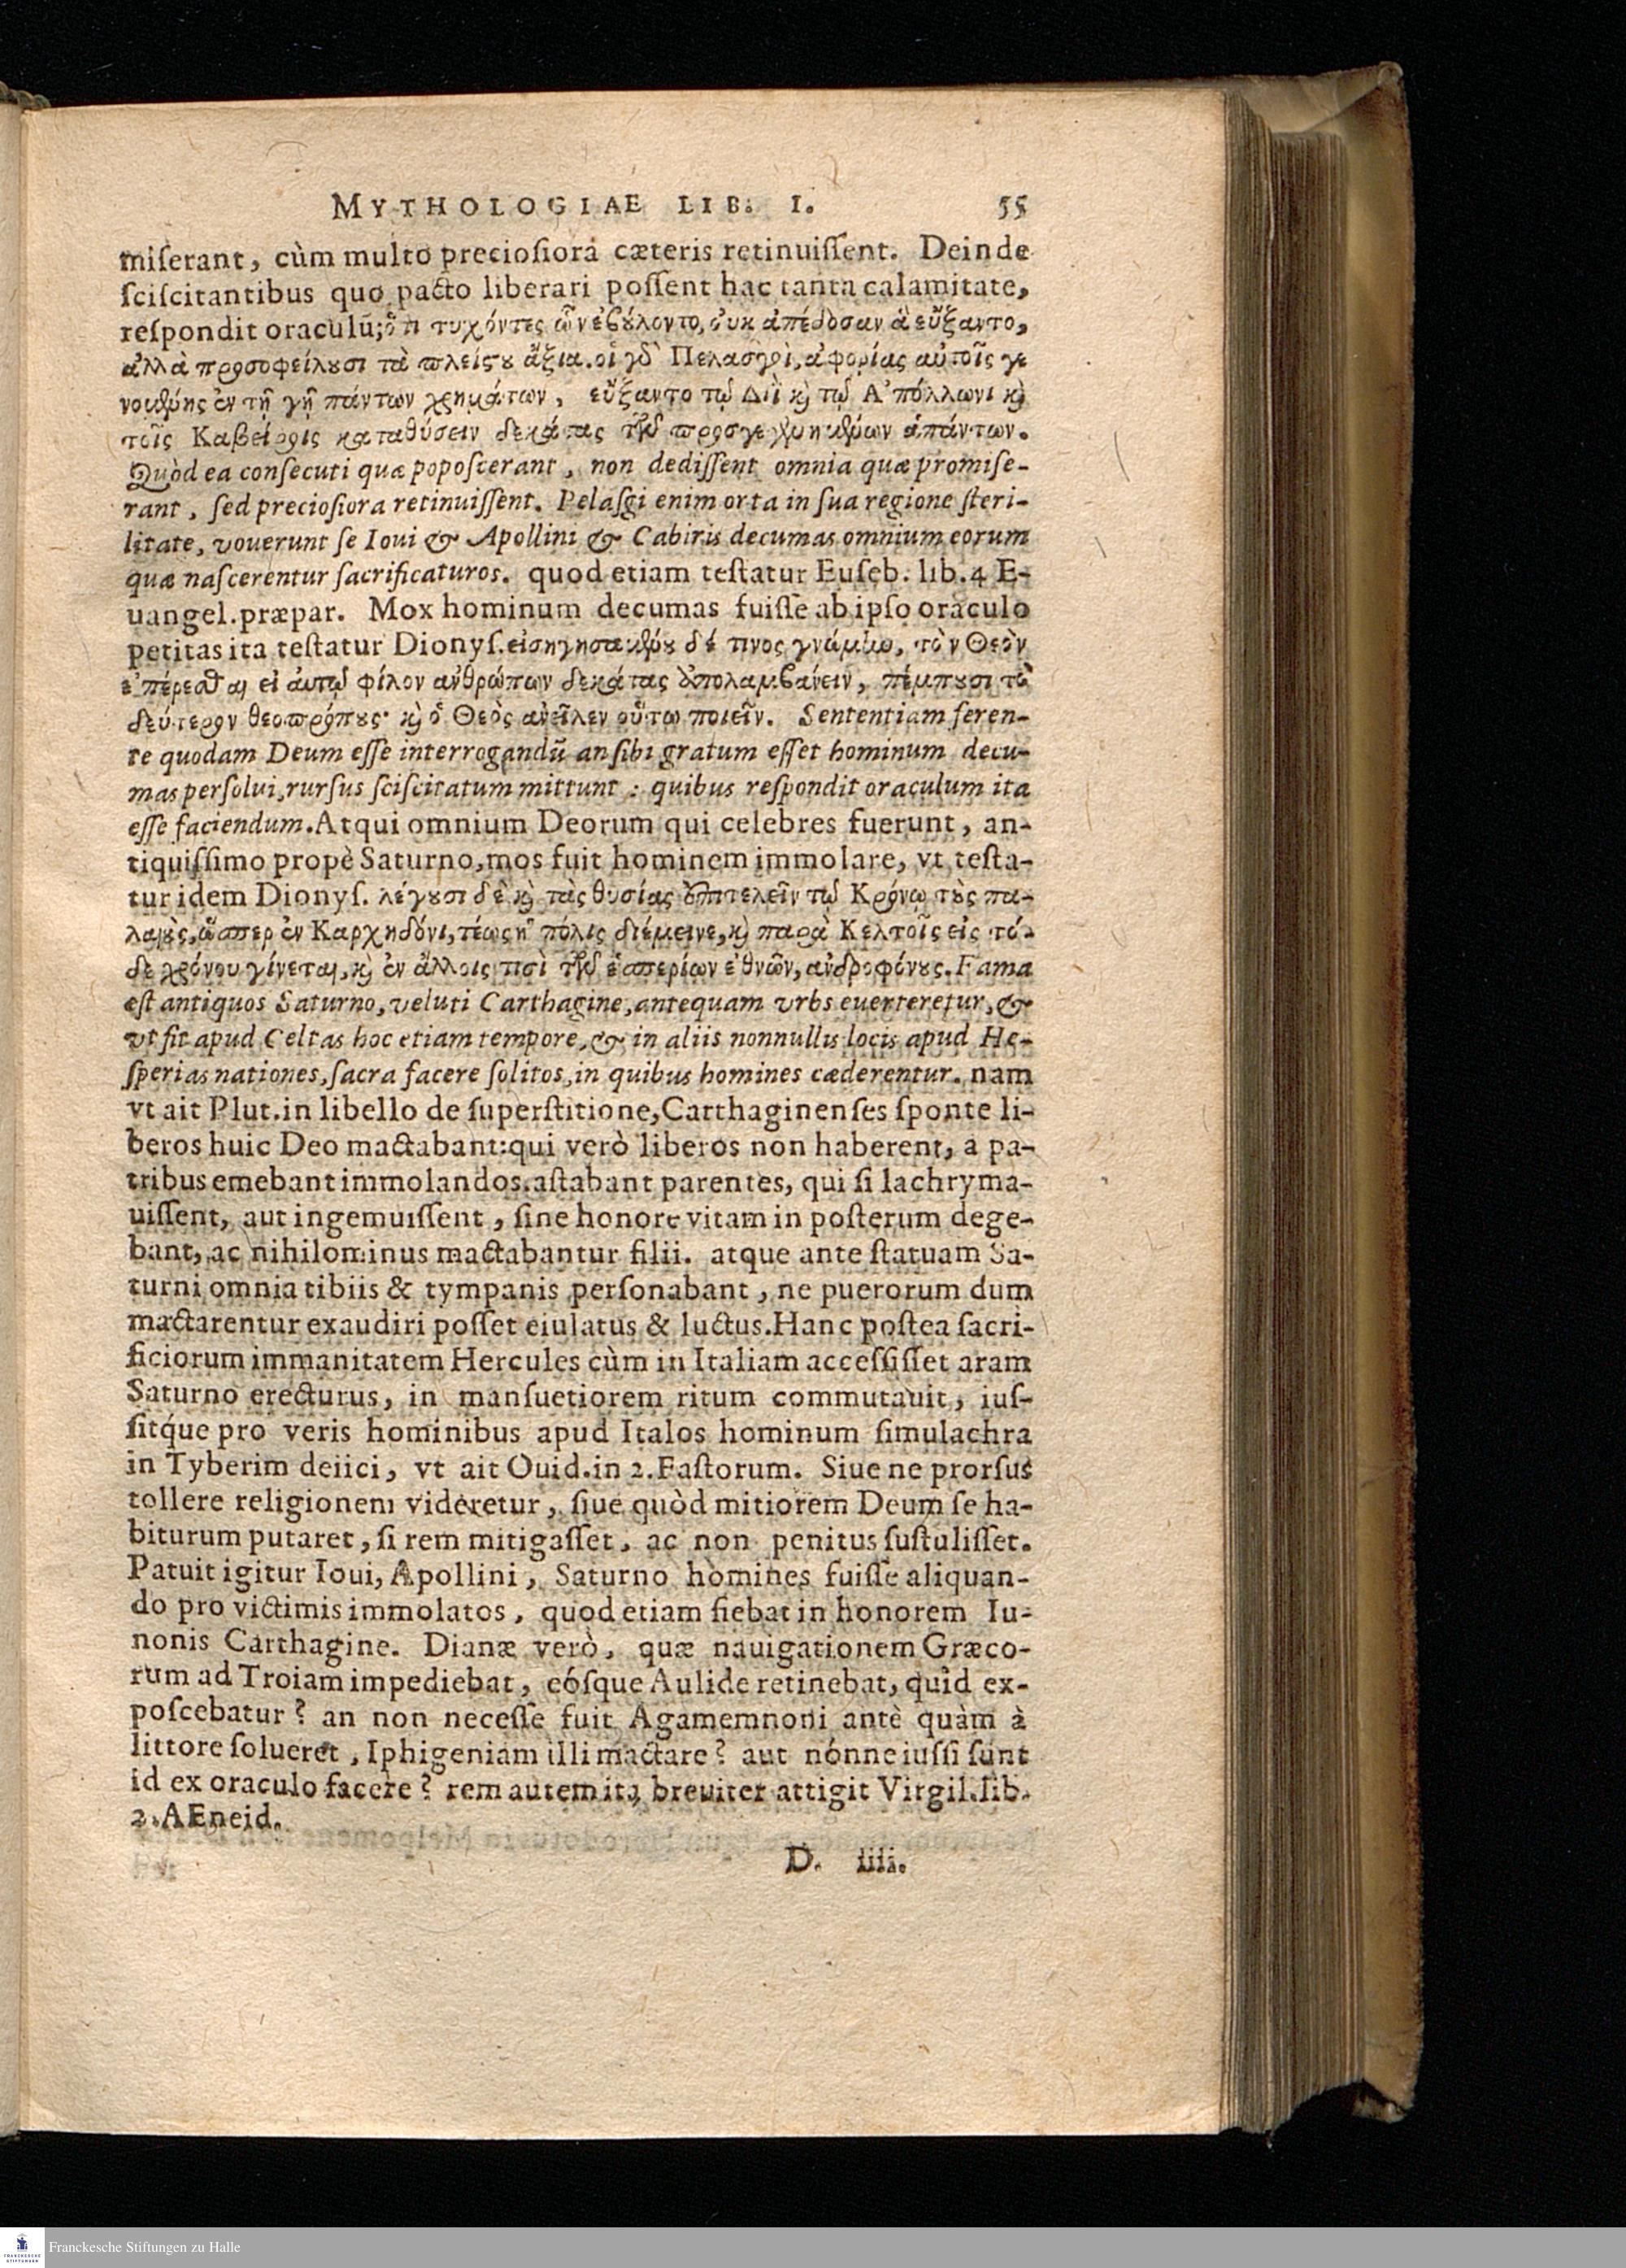 MYTHOLOGIAE LIB. I. 55
miserant, cùm multo preciosiora cæteris retinuissent. Deinde
sciscitantibus quo pacto liberari possent hac tanta calamitate,
respondit oraculũ; ὅτι τυχόντες ὧν ἐβούλοντο, ὀυκ ἀπέδοσαν ἃ εὔξαντο,
ἀλλὰ προσοφείλουσι τὰ πλείστου ἄξια. οἱ γὰρ Πελασγοὶ, ἀφορίας αὐτοῖς γε
νομένης ἐν τῇ γῇ πάντων χρημάτων, εὔξαντο τῷ Διῒ καὶ τῷ Ἀπόλλωνι καὶ
τοῖς Καβείροις καταθύσειν δεκάτας τῶν προσγενησομένων ἁπάντων.
Quòd ea consecuti quæ poposcerant, non dedissent omnia quæ promise-
rant, sed preciosiora retinuissent. Pelasgi enim orta in sua regione steri-
litate, vouerunt se Ioui & Apollini & Cabiris decumas omnium eorum
quæ nascerentur sacrificaturos. quod etiam testatur Euseb. lib. 4 E-
uangel. præpar. Mox hominum decumas fuisse ab ipso oraculo
petitas ita testatur Dionys. εἰσηγησαμένου δέ τινος γνώμην, τὸν Θεὸν
ἐπέρεσθαι εἰ ἀυτῷ φίλον ἀνθρώπων δεκάτας ἀπολαμβάνειν, πέμπουσι τὸ
δεύτερον θεοπρόπους· καὶ ὁ Θεὸς ἀνεῖλεν οὕτω ποιεῖν. Sententiam feren-
te quodam Deum esse interrogandũ an sibi gratum esset hominum decu-
mas persolui, rursus sciscitatum mittunt : quibus respondit oraculum ita
esse faciendum. Atqui omnium Deorum qui celebres fuerunt, an-
tiquissimo propè Saturno, mos fuit hominem immolare, vt testa-
tur idem Dionys. λέγουσι δὲ καὶ τὰς θυσίας ἐπιτελεῖν τῷ Κρόνῳ τοὺς πα-
λαιοὺς, ὥσπερ ἐν Καρχηδόνι, τέως ἡ πόλις διέμεινε, καὶ παρὰ Κελτοῖς εἰς τό-
δε χρόνου γίνεται, καὶ ἐν ἄλλοις τισὶ τῶν ἑσπερίων ἐθνῶν, ἀνδροφόνους. Fama
est antiquos Saturno, veluti Carthagine, antequam vrbs euerteretur, &
vt fit apud Celtas hoc etiam tempore, & in aliis nonnullis locis apud He-
sperias nationes, sacra facere solitos, in quibus homines cæderentur. nam
vt ait Plut. in libello de superstitione, Carthaginenses sponte li-
beros huic Deo mactabant: qui verò liberos non haberent, a pa-
tribus emebant immolandos. astabant parentes, qui si lachryma-
uissent, aut ingemuissent, sine honore vitam in posterum dege-
bant, ac nihilominus mactabantur filii. atque ante statuam Sa-
turni omnia tibiis & tympanis personabant, ne puerorum dum
mactarentur exaudiri posset eiulatus & luctus. Hanc postea sacri-
ficiorum immanitatem Hercules cùm in Italiam accessisset aram
Saturno erecturus, in mansuetiorem ritum commutauit, ius-
sitq́ue pro veris hominibus apud Italos hominum simulachra
in Tyberim deiici, vt ait Ouid. in 2. Fastorum. Siue ne prorsus
tollere religionem videretur, siue quòd mitiorem Deum se ha-
biturum putaret, si rem mitigasset, ac non penitus sustulisset.
Patuit igitur Ioui, Apollini, Saturno homines fuisse aliquan-
do pro victimis immolatos, quod etiam fiebat in honorem Iu-
nonis Carthagine. Dianæ verò, quæ nauigationem Græco-
rum ad Troiam impediebat, eósque Aulide retinebat, quid ex-
poscebatur? an non necesse fuit Agamemnoni antè quàm à
littore solueret, Iphigeniam illi mactare? aut nónne iussi sunt
id ex oraculo facere? rem autem ita breuiter attigit Virgil. lib.
2. AEneid.
D. iiii.
FRANCKESCHE STIFTUNGEN
Franckesche Stiftungen zu Halle